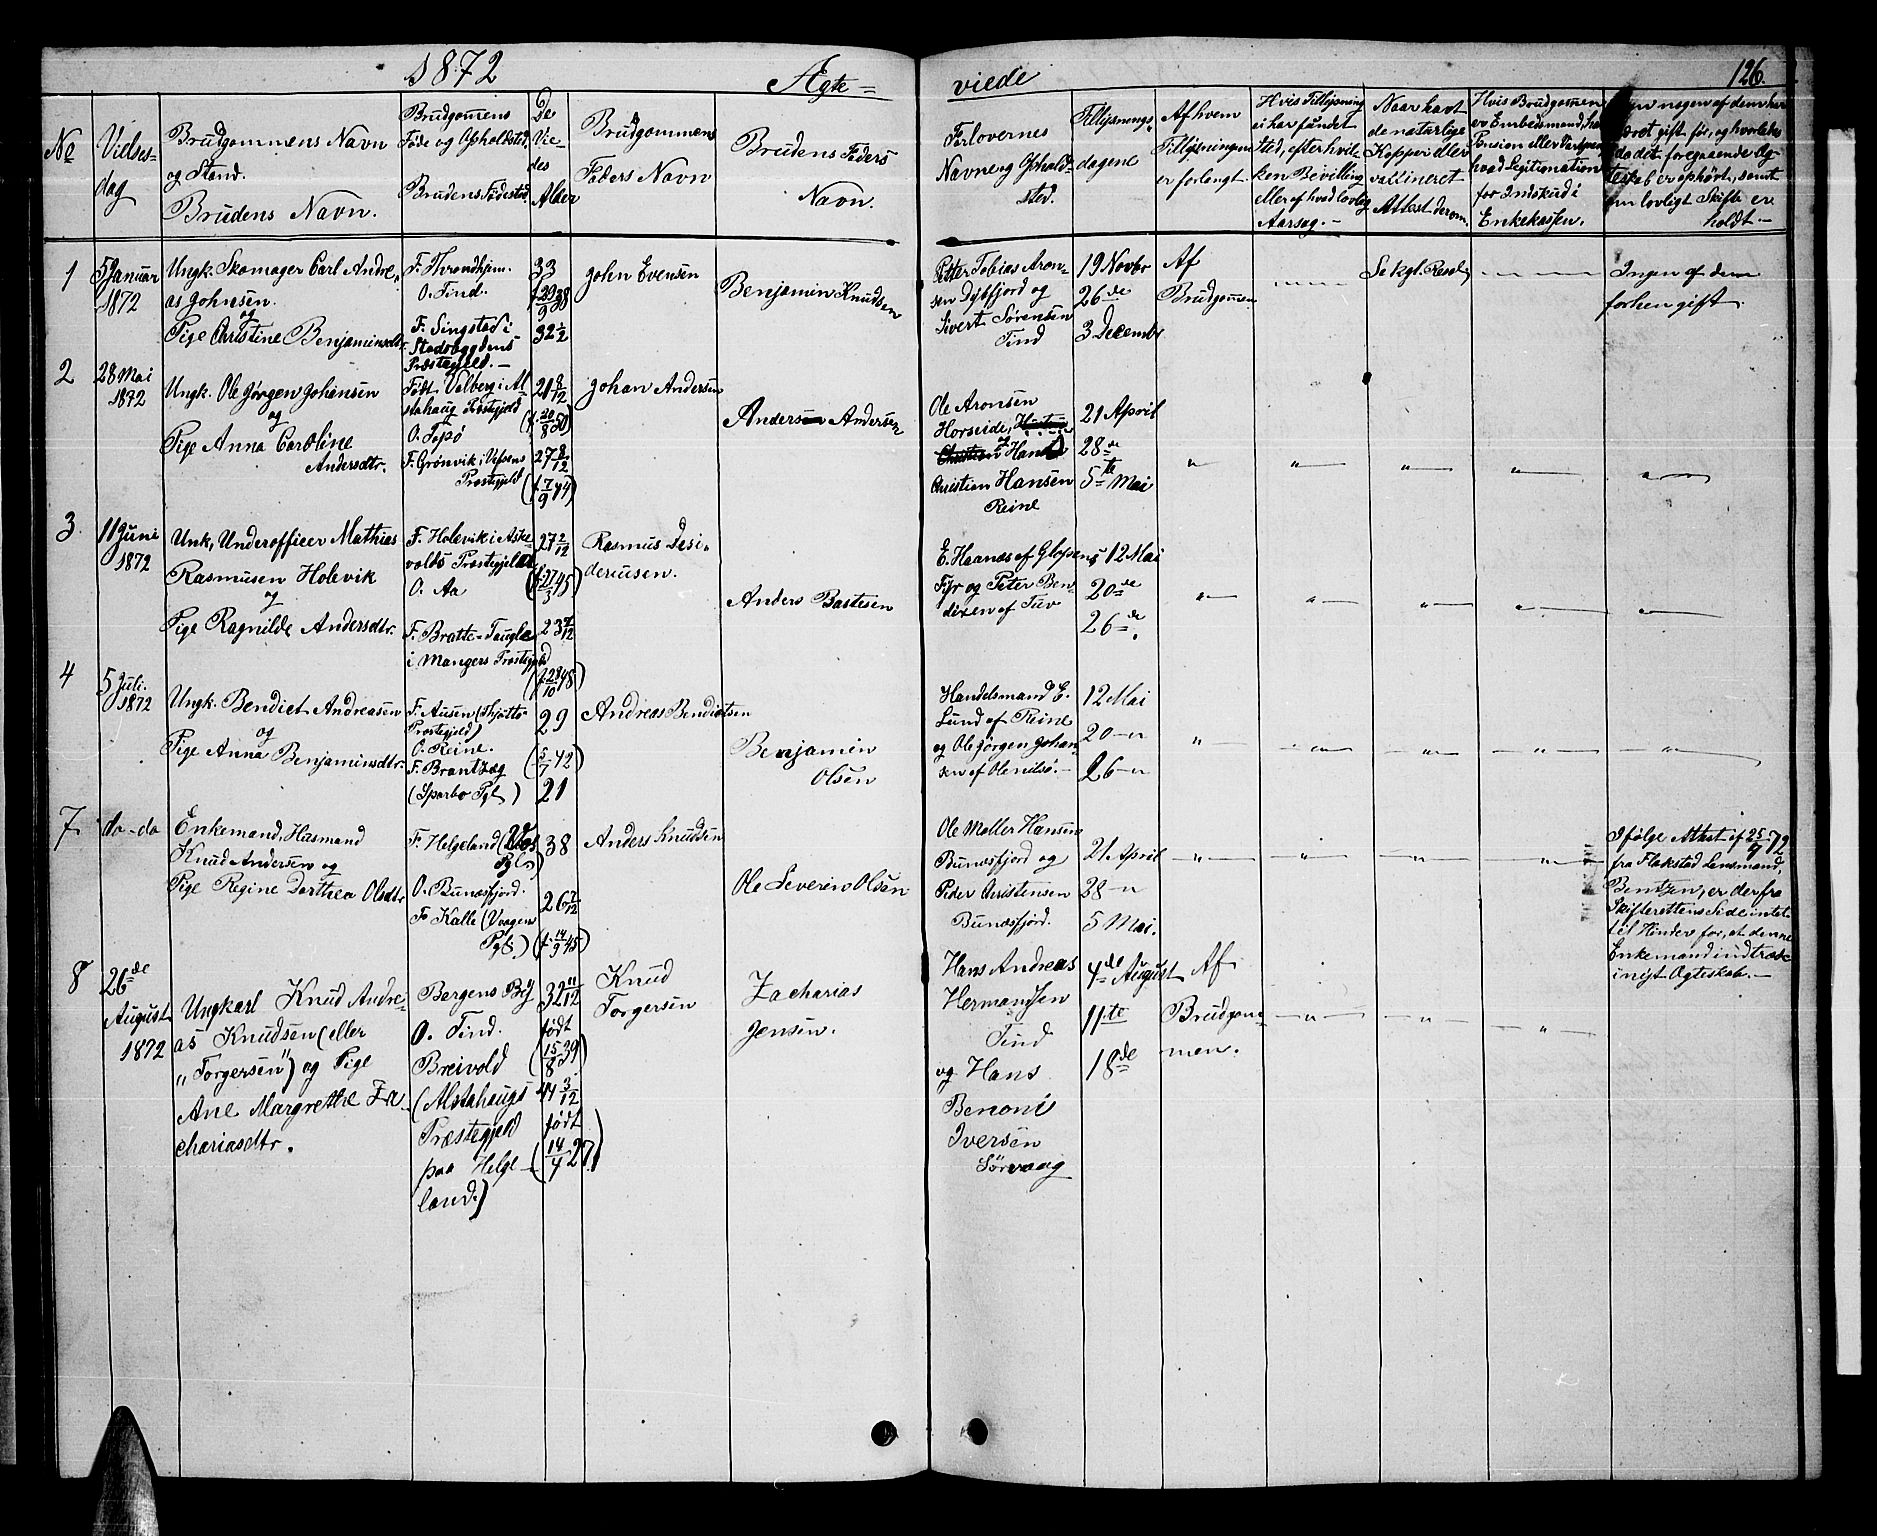 1872
Ægte=
viede
126.
No
Vielses-
dag
Brudgommens Navn
og Stand.
Brudens Navn.
Brudgomens
Føde og Opholdsted.
Brudens Fødested.
De
Vie-
des
Alder
Brudgommens
Faders Navn
Brudens Faders
Navn.
Forlovernes
Navne og Ophold-
sted.
Tillysnings-
dagene
Af hvem
Tillysningen
er forlangt.
Hvis Tillysning
ei har fundet
Sted, efter hvil-
ken Bevilling
eller af hvad lovlig
Aarsag.-
Naar havt
de naturlige
Kopper eller
vaccineret
Attest derom.
Hvis Brudgomen
er Embedsmand,
Pension eller
hvad Legitimation
for Indskud i
Enkekassen.
nogen af dem har
været gift før, og hvorledes
da det foregaaende Æg-
teskab er ophørt, samt
om lovligt Skifte er
holdt.-
1
5 Januar
1872
Ungk. Skomager Carl Andre-
as Johnsen.
og
Pige Christine Benjaminsdtr.
F. Throndhjem.
O. Tind.
F. Singstad i
Stadsbygdens
Præstegjeld.-
33
(f. 29/9 38
32 1/2
John Evensen
Benjamin Knudsen
Petter Tobias Aron-
sen Dybfjord og
Sivert Sørensen
Tind
19 Novbr
26de
3 Decembr
Af
Brudgomen
Se kgl. Resol.
Ingen af dem
forhen gift.
2
28 Mai
1872
Ungk. Ole Jørgen Johansen
og
Pige Anna Caroline
Andersdtr.
Født Valberg i Al-
stahaug Præstegjeld
O. Topø
F. Grønvik i Vefsens
Præstegjeld
21 8/12
(f. 20/8 50)
27 8/12
(f. 7/9 44)
Johan Andersen
Anders Andersen
Ole Aronsen
Horseide,
Christian Hansen
Reine
21 April
28de
5te Mai
"
"
"
"
"
3
11 Juni
1872
Unk, Underofficer Mathias
Rasmusen Holevik
og
Pige Ragnilde Andersdtr.
F. Holevik i Aske-
volds Præstegjeld
O. Aa
F. Bratte-Taugle
i Mangers Præstegjeld
27 2/12
(f. 27/3 45)
23 7/12
(f. 28/10 48)
Rasmus Desi-
deriusen.
Anders Bastesen
E. Haanes af Glopens
Fyr og Peter Ben-
dixen af Tuv
12 Mai
20de
26de.
"
"
"
"
"
4
5 Juli.
1872
Ungk. Bendict Andreasen
og
Pige Anna Benjaminsdtr.
F. Ausen (Thjøtto
Præstegjeld)
O. Reine.
F. Brantzæg
(Sparbo Pgl.)
29
(5/7 42)
21
Andreas Bendictsen
Benjamin
Olsen
Handelsmand E.
Lund af Reine
og Ole Jørgen Johan-
sen af Olenilsø.-
12 Mai
20-"
26-"
"
"
"
"
"
7
do-do
Enkemand, Husmand
Knud Andersen og
Pige Regine Dorthea Olsdtr
F. Helgeland (
Pgl.)
O. Bunæsfjord.
F. Kalle (Vaagen
Pgl.)
38
26 7/12
(f. 14/9 45)
Anders Knudsen
Ole Severin Olsen
Ole Møller Hansen
Bunæsfjord og
Peder Christensen
Bunæsfjord.
21 April
28-"
5 Mai.
"
"
"
"
Ifølge Attest af 25/7 72
fra Flakstad Lensmand,
Bentzen, er der fra
Skifterettens Side intet
til Hinder for, at denne
Enkemand indtræder
i nyt Ægteskab.-
8
26de
August
1872
Ungkarl Knud Andre-
as Knudsen (eller
"Torgersen") og Pige
Ane Margrethe Za-
chariasdtr.
Bergens By
O. Tind.
Breivold
(Alstahaugs
Præstegjeld
paa Helge-
land.)
32 11/12
født
(15/8 39)
44 3/12
født
(14/4 27)
Knud
Torgersen
Zacharias
Jensen.
Hans Andreas
Hermansen
Tind
og Hans
Benoni
Iversen
Sørvaag
4de August
11te
18de
Af
Brudgom-
men.
"
"
"